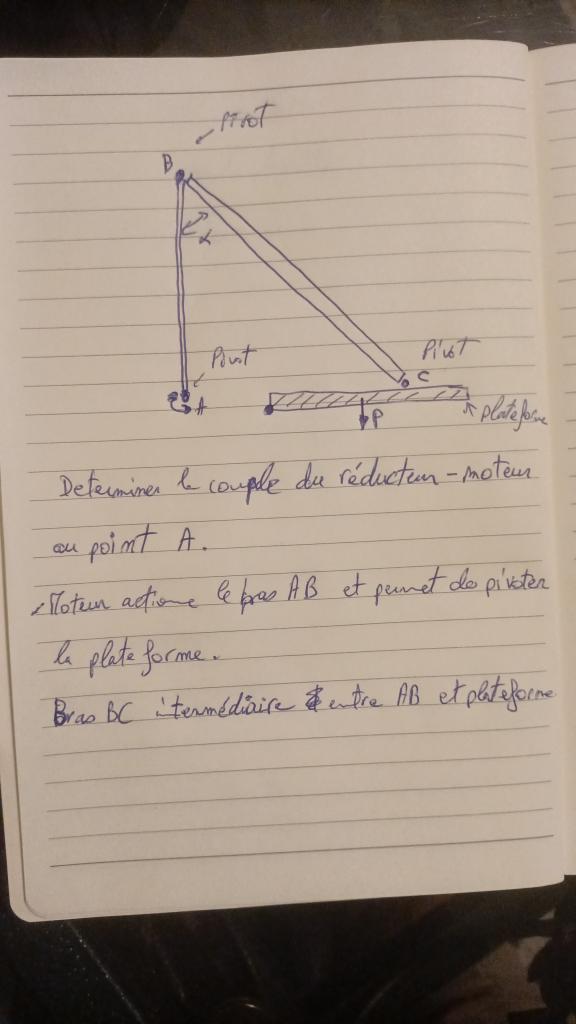 Pivot
B
α
Pivot
Pivot
C
A
P
plateforme
Determiner le couple du réducteur - moteur
au point A.
Moteur actione le bras AB et permet de pivoter
la plateforme.
Bras BC intermédiaire entre AB et plateforme